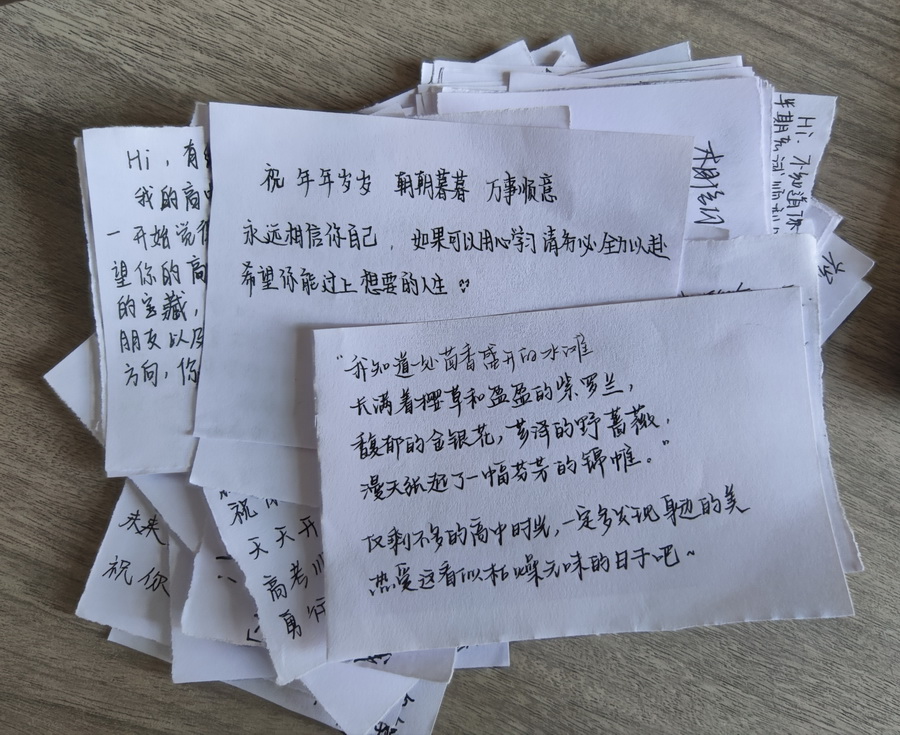 Hi，有
我的高
一开始觉得
望你的高
的宝藏，
朋友以及
方向，你
祝 年年岁岁 朝朝暮暮 万事顺意
永远相信你自己，如果可以用心学习请务必全力以赴
希望你能过上想要的人生
相信
Hi. 不知道你
半期考试顺利
“我知道一处茴香盛开的水滩
长满着樱草和盈盈的紫罗兰，
馥郁的金银花，芗泽的野蔷薇，
漫天张起了一幅芬芳的锦帷。”
仅剩不多的高中时光，一定多发现身边的美
热爱这看似枯燥无味的日子吧~
未来
祝你
祝你
天天开
高考顺
勇行